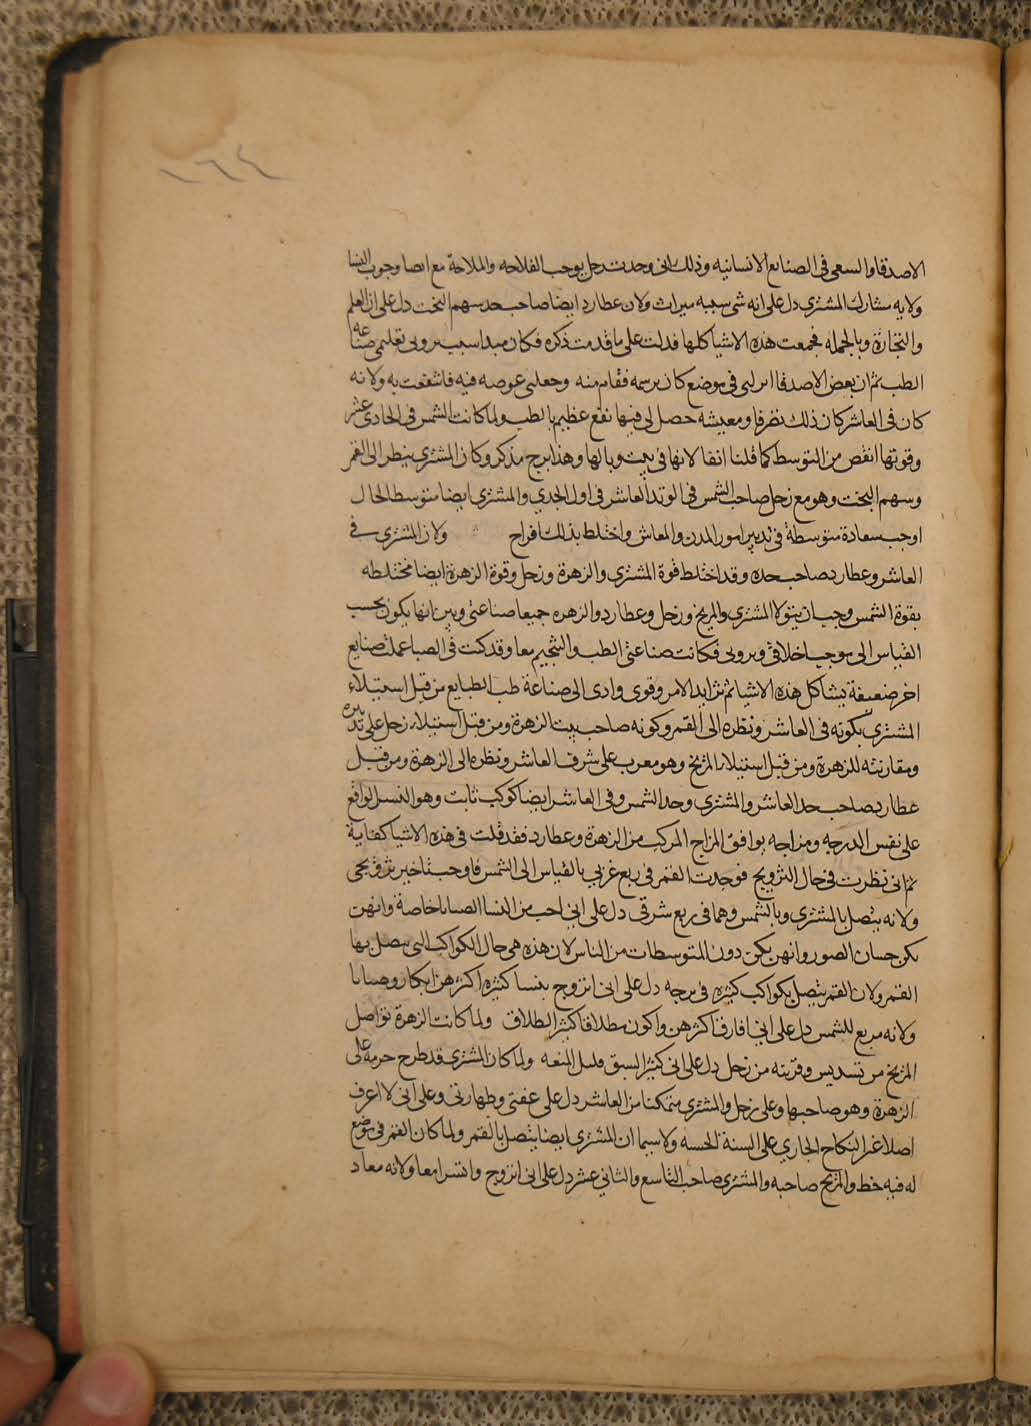 ١٦٤
الاصدقا والسعى فى الصنايع الانسانيه وذلك انى وجدت زحل يوجب الفلاحه والملاحة مع ايضا وجوب البنا
ولانه مشارك المشترى دل على انه شى سببه ميراث ولان عطارد ايضا صاحب حد سهم البخت دل على ان العلم
والتجارة وبالجمله فجمعت هذه الاشيا كلها فدلت على ما قدمت ذكره فكان مبدا سبب ثروتى تعليمى صناعه
الطب ثم ان بعض الاصدقا فى موضع كان يرسمه فقام منه وجعلنى عوضه فيه فانتفعت به ولانه
كان فى العاشر كان ذلك تصرفا ومعيشه حصل لى فيها نفع عظيم بالطب ولما كانت الشمس فى الحادى عشر
وقوتها انقص من المتوسط كما قلنا انفا لانها فى بيت وبالها وهذا برج مذكر وكان المشترى ينظر الى القمر
وسهم البخت وهو مع زحل صاحب الشمس فى الوتد العاشر فى اول الجدي والمشترى ايضا متوسط الحال
اوجب سعادة متوسطة فى تدبير امور المدن والمعاش واختلط بذلك افراح ولان المشترى فى
العاشر وعطارد صاحب حده وقد اختلط قوة المشترى والزهرة وزحل وقوة الزهرة ايضا مختلطه
بقوة الشمس وجب ان يتولا المشترى والمريخ وزحل وعطارد والزهره جميعا صناعتى وبين انها يكون بحسب
القياس الى موجب اخلاقى وثروتى فكانت صناعتى الطب والتنجيم معا وقد كنت فى الصبا عملت صنايع
اخر ضعيفة يشاكل هذه الاشيا ثم تزايد الامر وقوى وادى الى صناعة طب الطبايع من قبل استيلاء
المشترى بكونه فى العاشر ونظره الى القمر وكونه صاحب بيت الزهرة ومن قبل استيلاء زحل على تدبيره
ومقارنته للزهرة ومن قبل استيلاء المريخ وهو معرب على شرف العاشر ونظره الى الزهرة ومن قبل
عطارد صاحب حد العاشر والمشترى وحد الشمس وفى العاشر ايضا كوكب ثابت وهو النسر الواقع
على نفس الدرجه ومزاجه يوافق المزاج المركب من الزهرة وعطارد فقد قلت فى هذه الاشيا كفاية
ثم انى نظرت فى حال التزويج فوجدت القمر فى ربع غربى بالقياس الى الشمس فاوجب تاخير تزويجى
ولانه يتصل بالمشترى وبالشمس وهما فى ربع شرقى دل على انى احب من النسا الصبايا خاصة وانهن
يكن حسان الصور وانهن يكن دون المتوسطات من الناس لان هذه هى حال الكواكب التى يتصل بها
القمر ولان القمر يتصل بكواكب كثيره فى برجه دل على انى اتزوج بنسا كثيره اكثرهن ابكار وصبايا
ولانه مربع للشمس دل على انى افارق اكثرهن واكون مطلاقا كثير الطلاق ولما كانت الزهرة تواصل
المريخ من تسديس وقريبه من زحل دل على انى كثير السبق قليل المتعه ولما كان المشترى قد طرح حرمه على
الزهرة وهو صاحبها وعلى زحل والمشترى متمكنا من العاشر دل على عفتى وطهارتى وعلى انى لا اعرف
اصلا غير النكاح الجاري على السنة الحسنه ولا سيما ان المشترى ايضا يتصل بالقمر ولما كان القمر فى موضع
له فيه حظ والمريخ صاحبه والمشترى صاحب التاسع والثانى عشر دل على انى اتزوج وانتسرا معا ولانه معاد